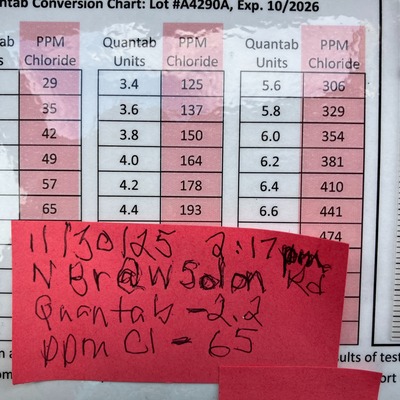 ntab Conversion Chart: Lot #A4290A, Exp. 10/2026
tab PPM Quantab PPM Quantab PPM
s Chloride Units Chloride Units Chloride
29 3.4 125 5.6 306
35 3.6 137 5.8 329
42 3.8 150 6.0 354
49 4.0 164 6.2 381
57 4.2 178 6.4 410
65 4.4 193 6.6 441
474
11/30/25 2:17pm
N Br@W Sdon Rd
Quantab - 2.2
ppm Cl - 65
sults of test
ort